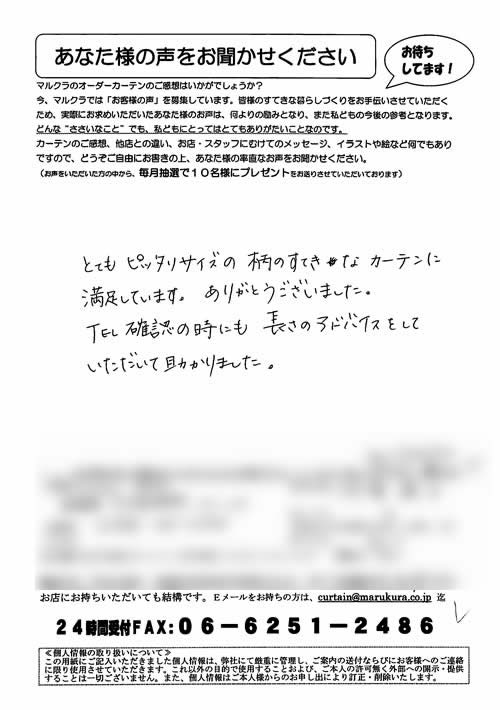 あなた様の声をお聞かせください
お待ち
してます！
マルクラのオーダーカーテンのご感想はいかがでしょうか？
今、マルクラでは「お客様の声」を募集しています。皆様のすてきな暮らしづくりをお手伝いさせていただく
ため、実際にお求めいただいたあなた様のお声は、何よりの励みとなり、また私どもの今後の参考となります。
どんな“ささいなこと”でも、私どもにとってはとてもありがたいことなのです。
カーテンのご感想、他店との違い、お店・スタッフにむけてのメッセージ、イラストや絵など何でもあり
ですので、どうぞご自由にお書きの上、あなた様の率直なお声をお聞かせください。
（お声をいただいた方の中から、毎月抽選で１０名様にプレゼントをお送りさせていただいております）
とても ピッタリサイズの 柄のすてきな カーテンに
満足しています。 ありがとうございました。
TEL 確認の時にも 長さのアドバイスをして
いただいて助かりました。
お店にお持ちいただいても結構です。Ｅメールをお持ちの方は、curtain@marukura.co.jp 迄
２４時間受付ＦＡＸ：０６－６２５１－２４８６
≪個人情報の取り扱いについて≫
この用紙にご記入いただきました個人情報は、弊社にて厳重に管理し、ご案内の送付ならびにお客様へのご連絡
に限り使用させていただきます。これ以外の目的で使用することおよび、ご本人の許可無く外部への開示・提供
することは一切ございません。また、個人情報はご本人様からのお申し出により訂正・削除いたします。